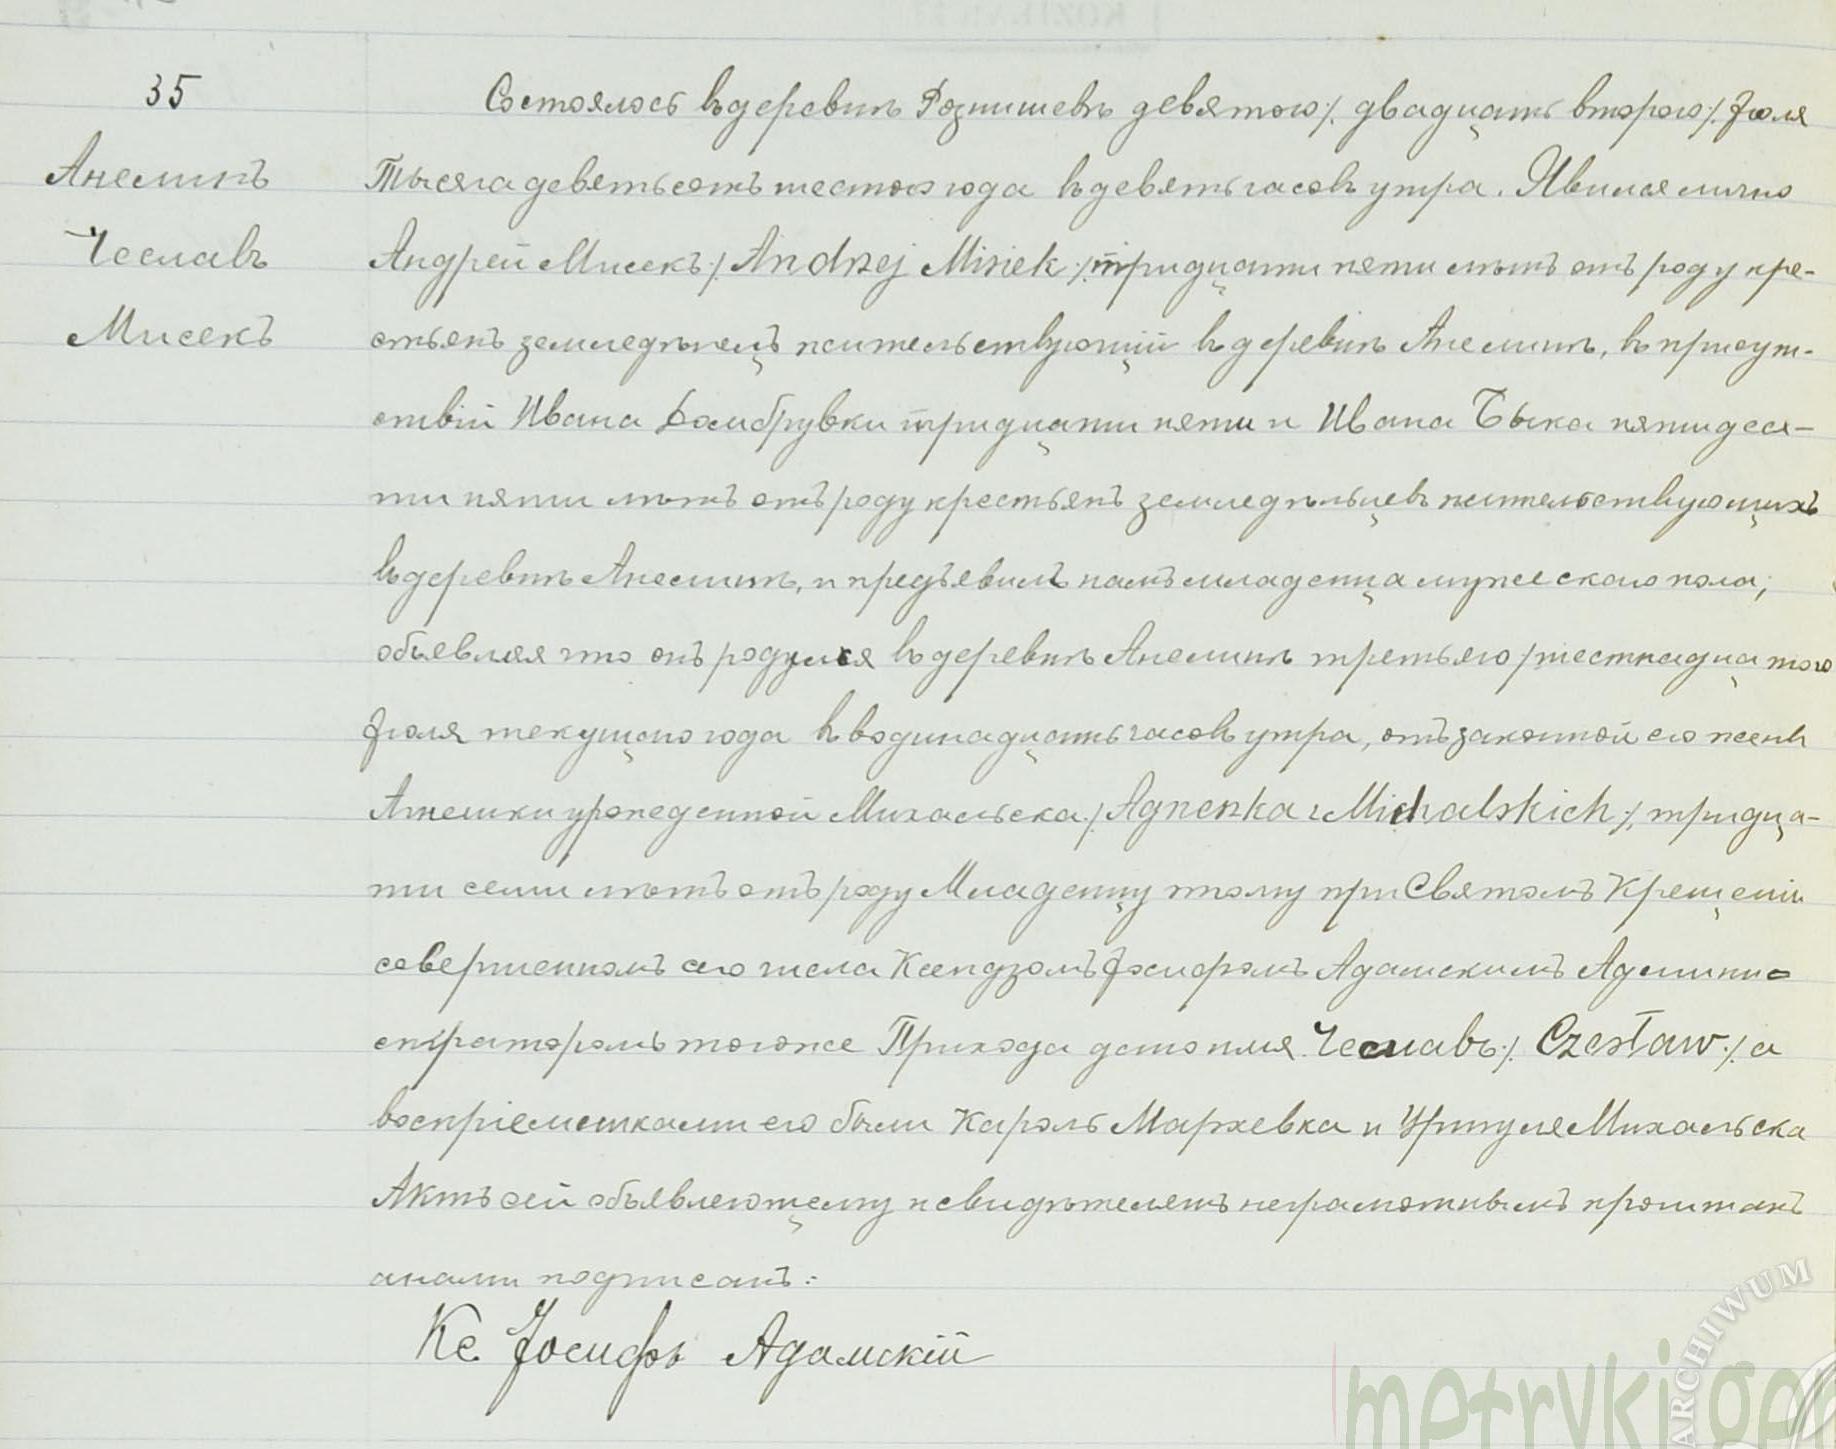 35
Анелинъ
Чеславъ
Мисекъ
Состоялось въ деревнѣ Рознишевѣ девятого /. двадцать второго /. Іюля
Тысяча девятьсотъ шестого года въ девять часовъ утра. Явился лично
Андрей Мисекъ /. Andrzej Misiek /. тридцати пяти лѣтъ отъ роду кре-
стьянъ земледѣлецъ жительствующій въ деревнѣ Анелинѣ, въ присут-
ствій Ивана Домбрувки тридцати пяти и Ивана Быка пятидеся-
ти пяти лѣтъ отъ роду крестьянъ земледѣльцевъ жительствующихъ
въ деревнѣ Анелинѣ, и предъявилъ намъ младенца мужескаго пола,
объявляя что онъ родился въ деревнѣ Анелинѣ третьяго / шестнадцатого
Іюля текущаго года въ одинадцать часовъ утра, отъ законной его жены
Агнешки урожденной Михальска /. Agnenka z Michalskich /. тридца-
ти семи лѣтъ отъ роду Младенцу тому при Святомъ Крещеніи
совершенномъ сего числа Ксендзомъ Іосифомъ Адамскимъ Админи-
страторомъ тогоже Прихода дано имя Чеславъ /. Czesław /. а
воспріемниками его были Кароль Мархевка и Уршуля Михальска
Актъ сей объявляющему и свидѣтелямъ неграмотнымъ прочитанъ
а нами подписанъ:
Кс. Іосифъ Адамскій
ARCHIWUM
metryki.gen